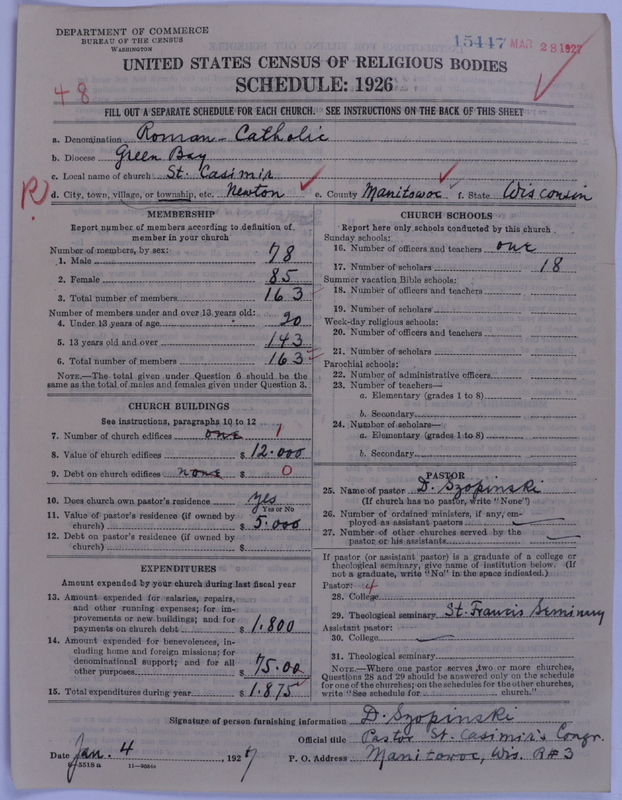 DEPARTMENT OF COMMERCE
BUREAU OF THE CENSUS
WASHINGTON
15447 MAR 28 1927
UNITED STATES CENSUS OF RELIGIOUS BODIES
SCHEDULE: 1926
48
FILL OUT A SEPARATE SCHEDULE FOR EACH CHURCH. SEE INSTRUCTIONS ON THE BACK OF THIS SHEET
a. Denomination Roman-Catholic
b. Diocese Green Bay
c. Local name of church St. Casimir
R d. City, town, village, or township, etc. Newton e. County Manitowoc f. State Wisconsin
MEMBERSHIP
Report number of members according to definition of
member in your church
Number of members, by sex:
1. Male 78
2. Female 85
3. Total number of members 163
Number of members under and over 13 years old:
4. Under 13 years of age 20
5. 13 years old and over 143
6. Total number of members 163
NOTE.—The total given under Question 6 should be
the same as the total of males and females given under Question 3.
CHURCH BUILDINGS
See instructions, paragraphs 10 to 12
7. Number of church edifices one 1
8. Value of church edifices $ 12.000
9. Debt on church edifices none $ 0
10. Does church own pastor's residence yes
Yes or No
11. Value of pastor's residence (if owned by
church) $ 5.000
12. Debt on pastor's residence (if owned by
church) $
EXPENDITURES
Amount expended by your church during last fiscal year
13. Amount expended for salaries, repairs,
and other running expenses; for im-
provements or new buildings; and for
payments on church debt $ 1.800
14. Amount expended for benevolences, in-
cluding home and foreign missions; for
denominational support; and for all
other purposes $ 75.00
15. Total expenditures during year $ 1.875
CHURCH SCHOOLS
Report here only schools conducted by this church
Sunday schools:
16. Number of officers and teachers one
17. Number of scholars 18
Summer vacation Bible schools:
18. Number of officers and teachers
19. Number of scholars
Week-day religious schools:
20. Number of officers and teachers
21. Number of scholars
Parochial schools:
22. Number of administrative officers
23. Number of teachers—
a. Elementary (grades 1 to 8)
b. Secondary
24. Number of scholars—
a. Elementary (grades 1 to 8)
b. Secondary
PASTOR
25. Name of pastor D. Szopinski
(If church has no pastor, write "None")
26. Number of ordained ministers, if any, em-
ployed as assistant pastors
27. Number of other churches served by the
pastor or his assistants
If pastor (or assistant pastor) is a graduate of a college or
theological seminary, give name of institution below. (If
not a graduate, write "No" in the space indicated.)
Pastor: 4
28. College
29. Theological seminary St. Francis Seminary
Assistant pastor:
30. College
31. Theological seminary
NOTE.—Where one pastor serves two or more churches,
Questions 28 and 29 should be answered only on the schedule
for one of the churches; on the schedules for the other churches,
write "See schedule for church."
Signature of person furnishing information D. Szopinski
Official title Pastor St. Casimir's Congr.
Date Jan. 4, 1927 P. O. Address Manitowoc, Wis. R#3